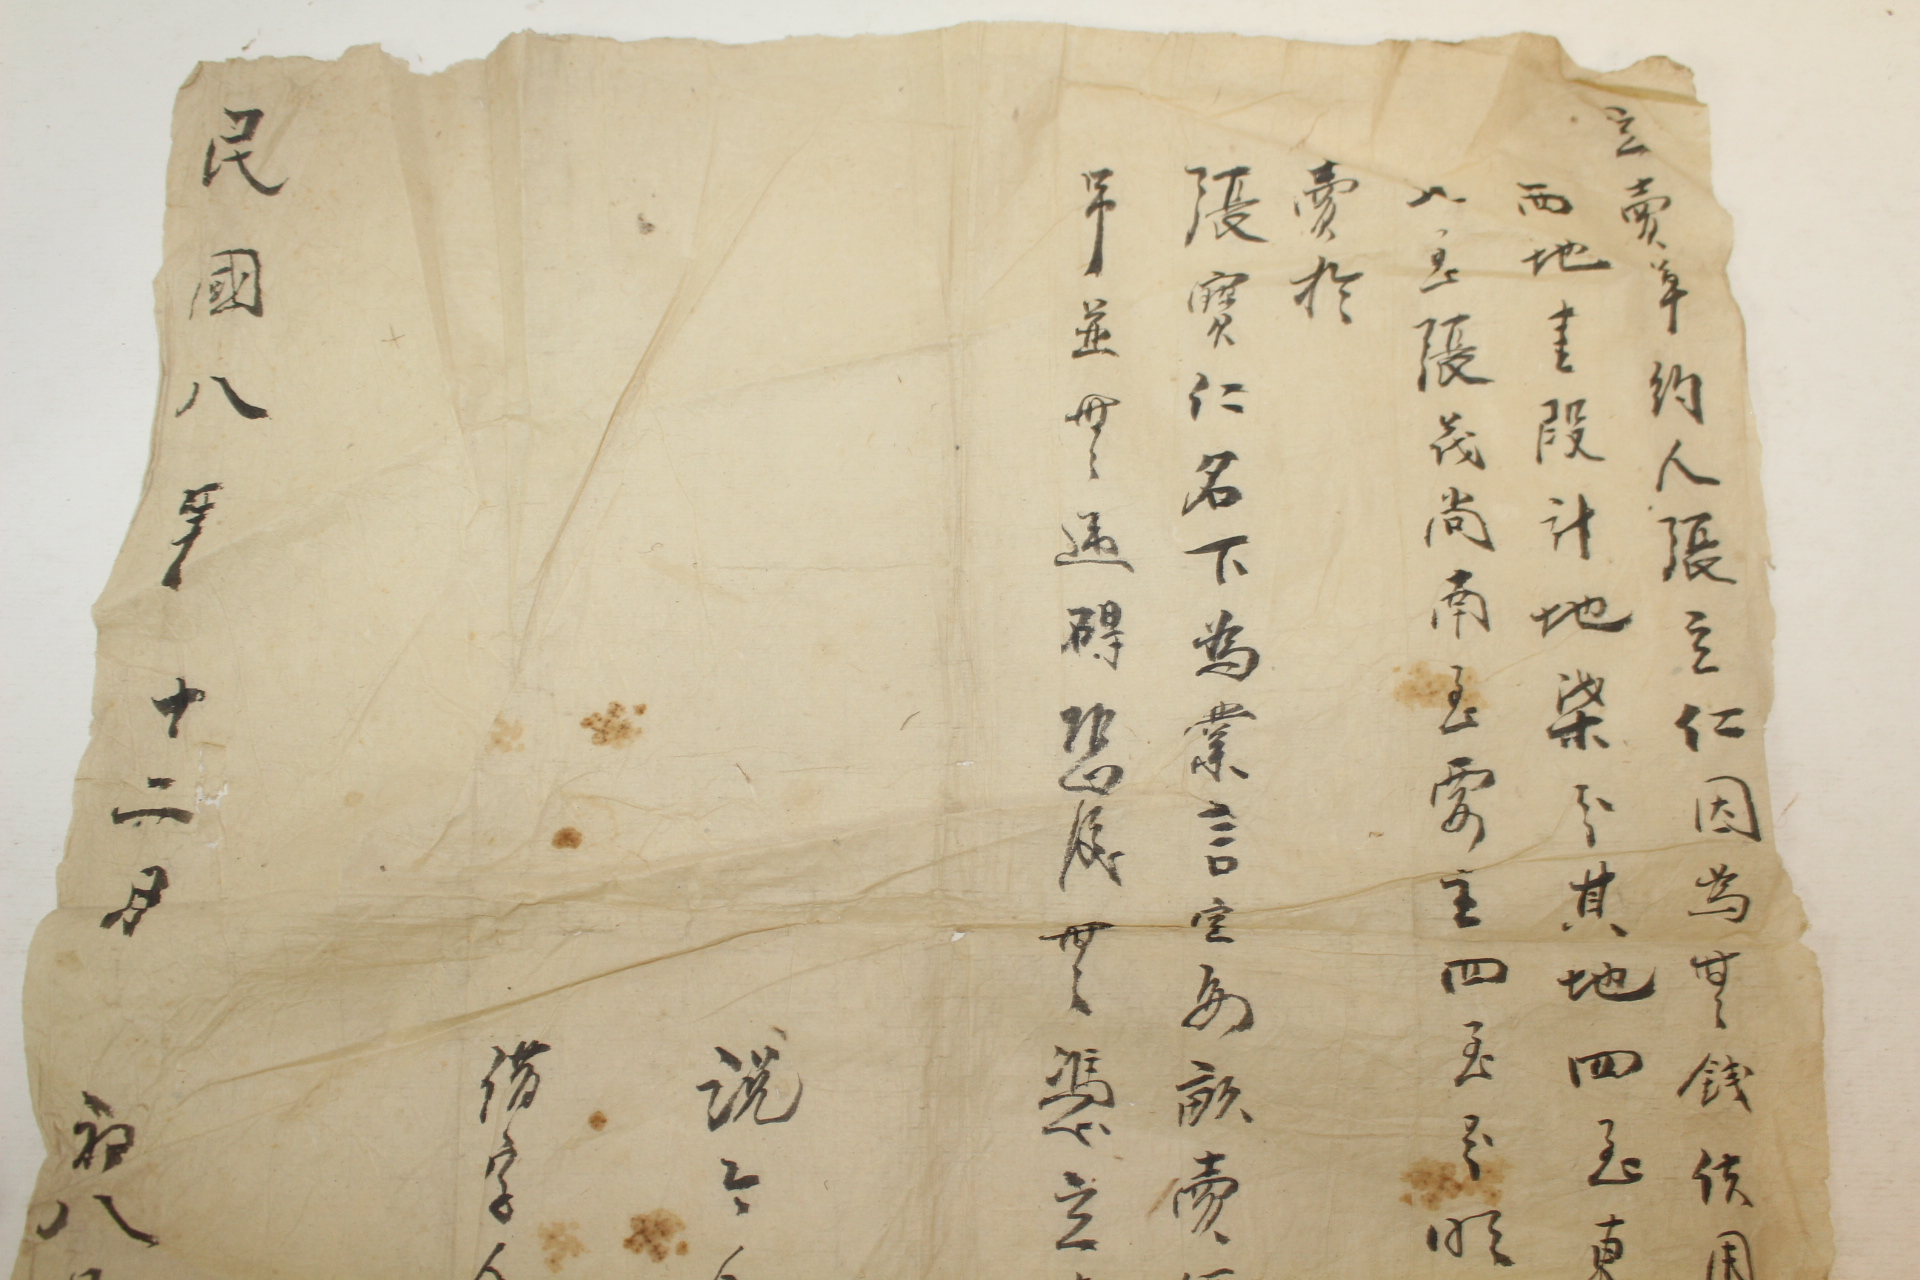 立賣草約人張立仁因為無錢使用
西地壹段計地柒分其地四至東
北至張茂尚南至買主四至分明
賣於
張寶仁名下為業言定每畝賣
吊並無違碍恐後無憑立
說合人
借字人
民國八年十二月初八日